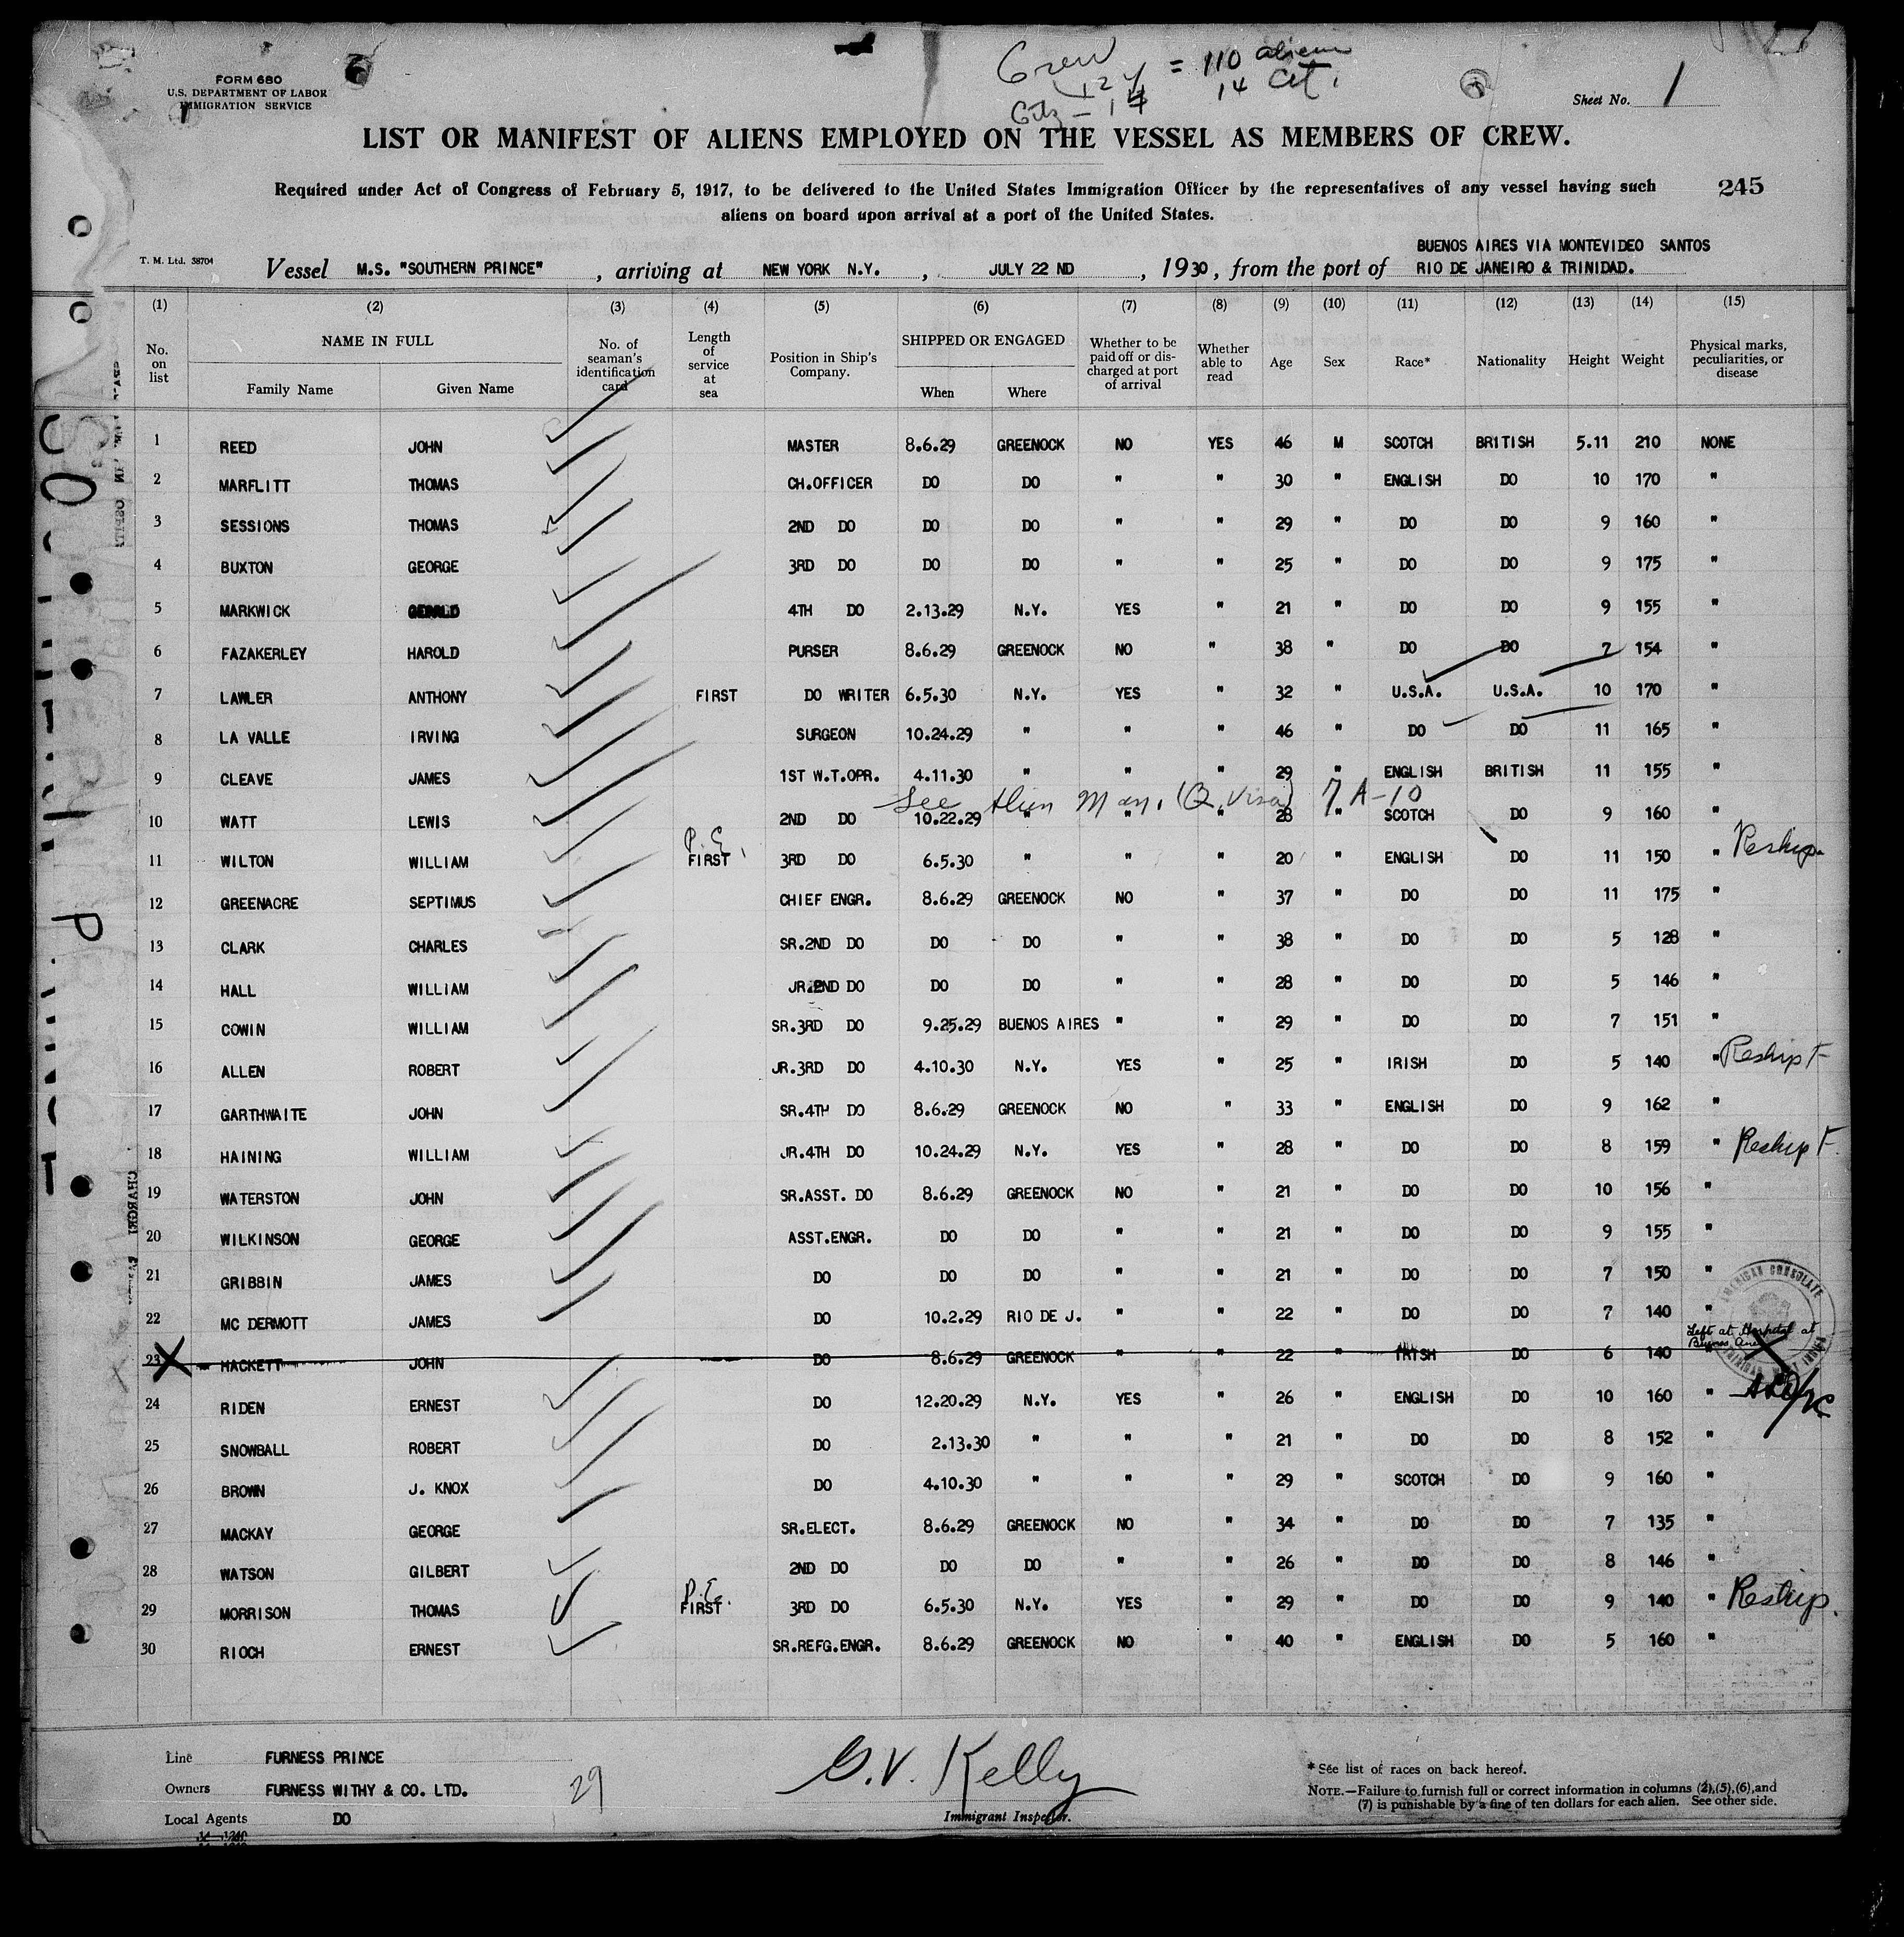 Crew 124 = 110 aliens
Citz - 14 14 Cit.
FORM 680
U.S. DEPARTMENT OF LABOR
IMMIGRATION SERVICE
Sheet No. 1
LIST OR MANIFEST OF ALIENS EMPLOYED ON THE VESSEL AS MEMBERS OF CREW.
Required under Act of Congress of February 5, 1917, to be delivered to the United States Immigration Officer by the representatives of any vessel having such
aliens on board upon arrival at a port of the United States.
245
T. M. Ltd. 38704
BUENOS AIRES VIA MONTEVIDEO SANTOS
Vessel M.S. "SOUTHERN PRINCE", arriving at NEW YORK N.Y., JULY 22 ND, 1930, from the port of RIO DE JANEIRO & TRINIDAD.
(1) (2) (3) (4) (5) (6) (7) (8) (9) (10) (11) (12) (13) (14) (15)
No. on list NAME IN FULL Family Name Given Name No. of seaman's identification card Length of service at sea Position in Ship's Company. SHIPPED OR ENGAGED When Where Whether to be paid off or discharged at port of arrival Whether able to read Age Sex Race* Nationality Height Weight Physical marks, peculiarities, or disease
1 REED JOHN MASTER 8.6.29 GREENOCK NO YES 46 M SCOTCH BRITISH 5.11 210 NONE
2 MARFLITT THOMAS CH.OFFICER DO DO " " 30 " ENGLISH DO 10 170 "
3 SESSIONS THOMAS 2ND DO DO DO " " 29 " DO DO 9 160 "
4 BUXTON GEORGE 3RD DO DO DO " " 25 " DO DO 9 175 "
5 MARKWICK GERALD 4TH DO 2.13.29 N.Y. YES " 21 " DO DO 9 155 "
6 FAZAKERLEY HAROLD PURSER 8.6.29 GREENOCK NO " 38 " DO DO 7 154 "
7 LAWLER ANTHONY FIRST DO WRITER 6.5.30 N.Y. YES " 32 " U.S.A. U.S.A. 10 170 "
8 LA VALLE IRVING SURGEON 10.24.29 " " " 46 " DO DO 11 165 "
9 CLEAVE JAMES 1ST W.T.OPR. 4.11.30 " " " 29 " ENGLISH BRITISH 11 155 "
See Alien Man. (Q. Visa) 7 A-10
10 WATT LEWIS 2ND DO 10.22.29 " " " 28 " SCOTCH DO 9 160 "
11 WILTON WILLIAM P.E. FIRST 3RD DO 6.5.30 " " " 20 " ENGLISH DO 11 150 " Reship.
12 GREENACRE SEPTIMUS CHIEF ENGR. 8.6.29 GREENOCK NO " 37 " DO DO 11 175 "
13 CLARK CHARLES SR.2ND DO DO DO " " 38 " DO DO 5 128 "
14 HALL WILLIAM JR.2ND DO DO DO " " 28 " DO DO 5 146 "
15 COWIN WILLIAM SR.3RD DO 9.25.29 BUENOS AIRES " " 29 " DO DO 7 151 "
16 ALLEN ROBERT JR.3RD DO 4.10.30 N.Y. YES " 25 " IRISH DO 5 140 " Reship F
17 GARTHWAITE JOHN SR.4TH DO 8.6.29 GREENOCK NO " 33 " ENGLISH DO 9 162 "
18 HAINING WILLIAM JR.4TH DO 10.24.29 N.Y. YES " 28 " DO DO 8 159 " Reship F.
19 WATERSTON JOHN SR.ASST. DO 8.6.29 GREENOCK NO " 21 " DO DO 10 156 "
20 WILKINSON GEORGE ASST.ENGR. DO DO " " 21 " DO DO 9 155 "
21 GRIBBIN JAMES DO DO DO " " 21 " DO DO 7 150 "
22 MC DERMOTT JAMES DO 10.2.29 RIO DE J. " " 22 " DO DO 7 140 "
AMERICAN CONSULATE
Left at Hospital at
Buenos Aires
23 HACKETT JOHN DO 8.6.29 GREENOCK " " 22 " IRISH DO 6 140
24 RIDEN ERNEST DO 12.20.29 N.Y. YES " 26 " ENGLISH DO 10 160 "
25 SNOWBALL ROBERT DO 2.13.30 " " " 21 " DO DO 8 152 "
26 BROWN J. KNOX DO 4.10.30 " " " 29 " SCOTCH DO 9 160 "
27 MACKAY GEORGE SR.ELECT. 8.6.29 GREENOCK NO " 34 " DO DO 7 135 "
28 WATSON GILBERT 2ND DO DO DO " " 26 " DO DO 8 146 "
29 MORRISON THOMAS P.E. FIRST 3RD DO 6.5.30 N.Y. YES " 29 " DO DO 9 140 " Reship.
30 RIOCH ERNEST SR.REFG.ENGR. 8.6.29 GREENOCK NO " 40 " ENGLISH DO 5 160 "
Line FURNESS PRINCE
Owners FURNESS WITHY & CO. LTD.
Local Agents DO
29
G.V. Kelly
Immigrant Inspector.
* See list of races on back hereof.
NOTE.—Failure to furnish full or correct information in columns (2),(5),(6),and
(7) is punishable by a fine of ten dollars for each alien. See other side.